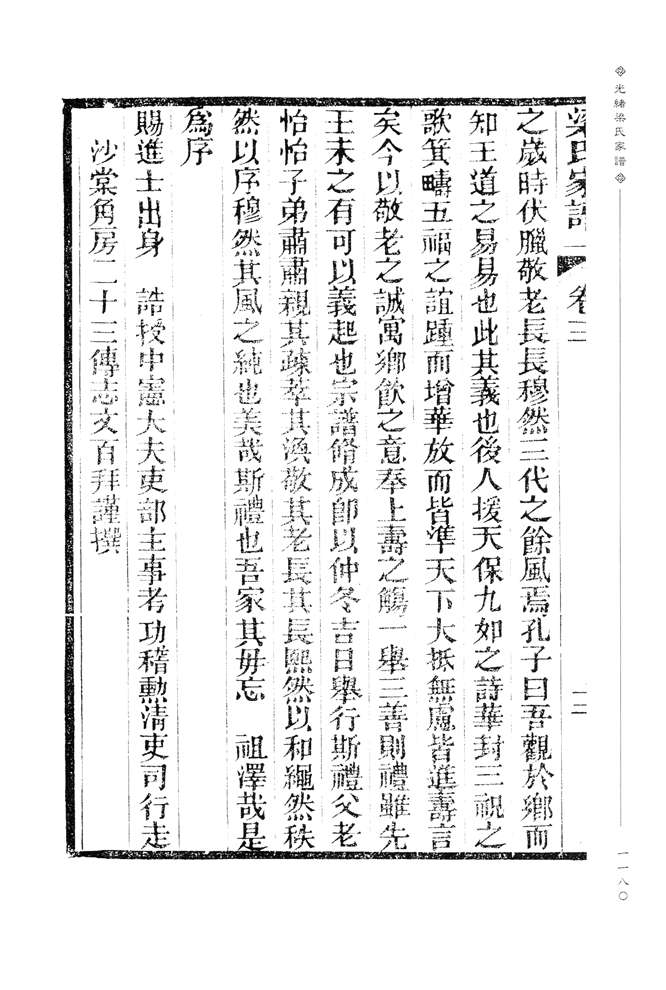 光緒梁氏家譜
一一八〇
梁氏家譜 卷三 十二
之歲時伏臘敬老長長穆然三代之餘風焉孔子曰吾觀於鄉而
知王道之易易也此其義也後人援天保九如之詩華封三祝之
歌箕疇五福之誼踵而增華放而皆準天下大抵無處皆進壽言
矣今以敬老之誠寓鄉飲之意奉上壽之觴一舉三善則禮雖先
王未之有可以義起也宗譜脩成卽以仲冬吉日舉行斯禮父老
怡怡子弟肅肅親其疎萃其渙敬其老長其長熙然以和繩然秩
然以序穆然其風之純也美哉斯禮也吾家其毋忘 祖澤哉是
爲序
賜進士出身 誥授中憲大夫吏部主事考功稽勳清吏司行走
沙棠角房二十三傳志文百拜謹撰